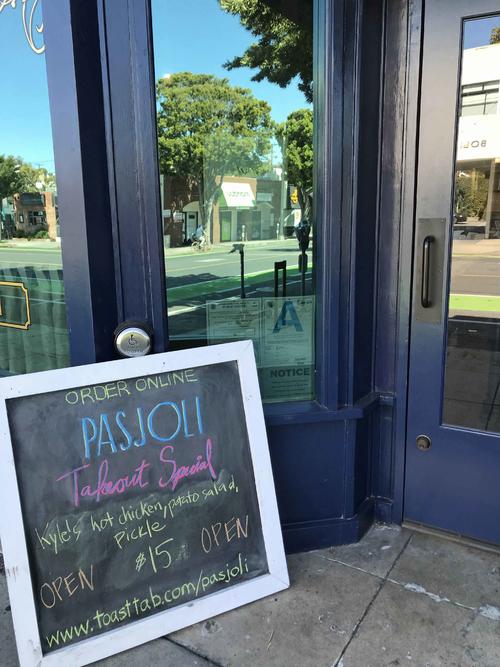 A
NOTICE
BOL
ORDER ONLINE
PASJOLI
Takeout Special
Kyle's hot chicken, potato salad,
Pickle
$15
OPEN
OPEN
www.toasttab.com/pasjoli